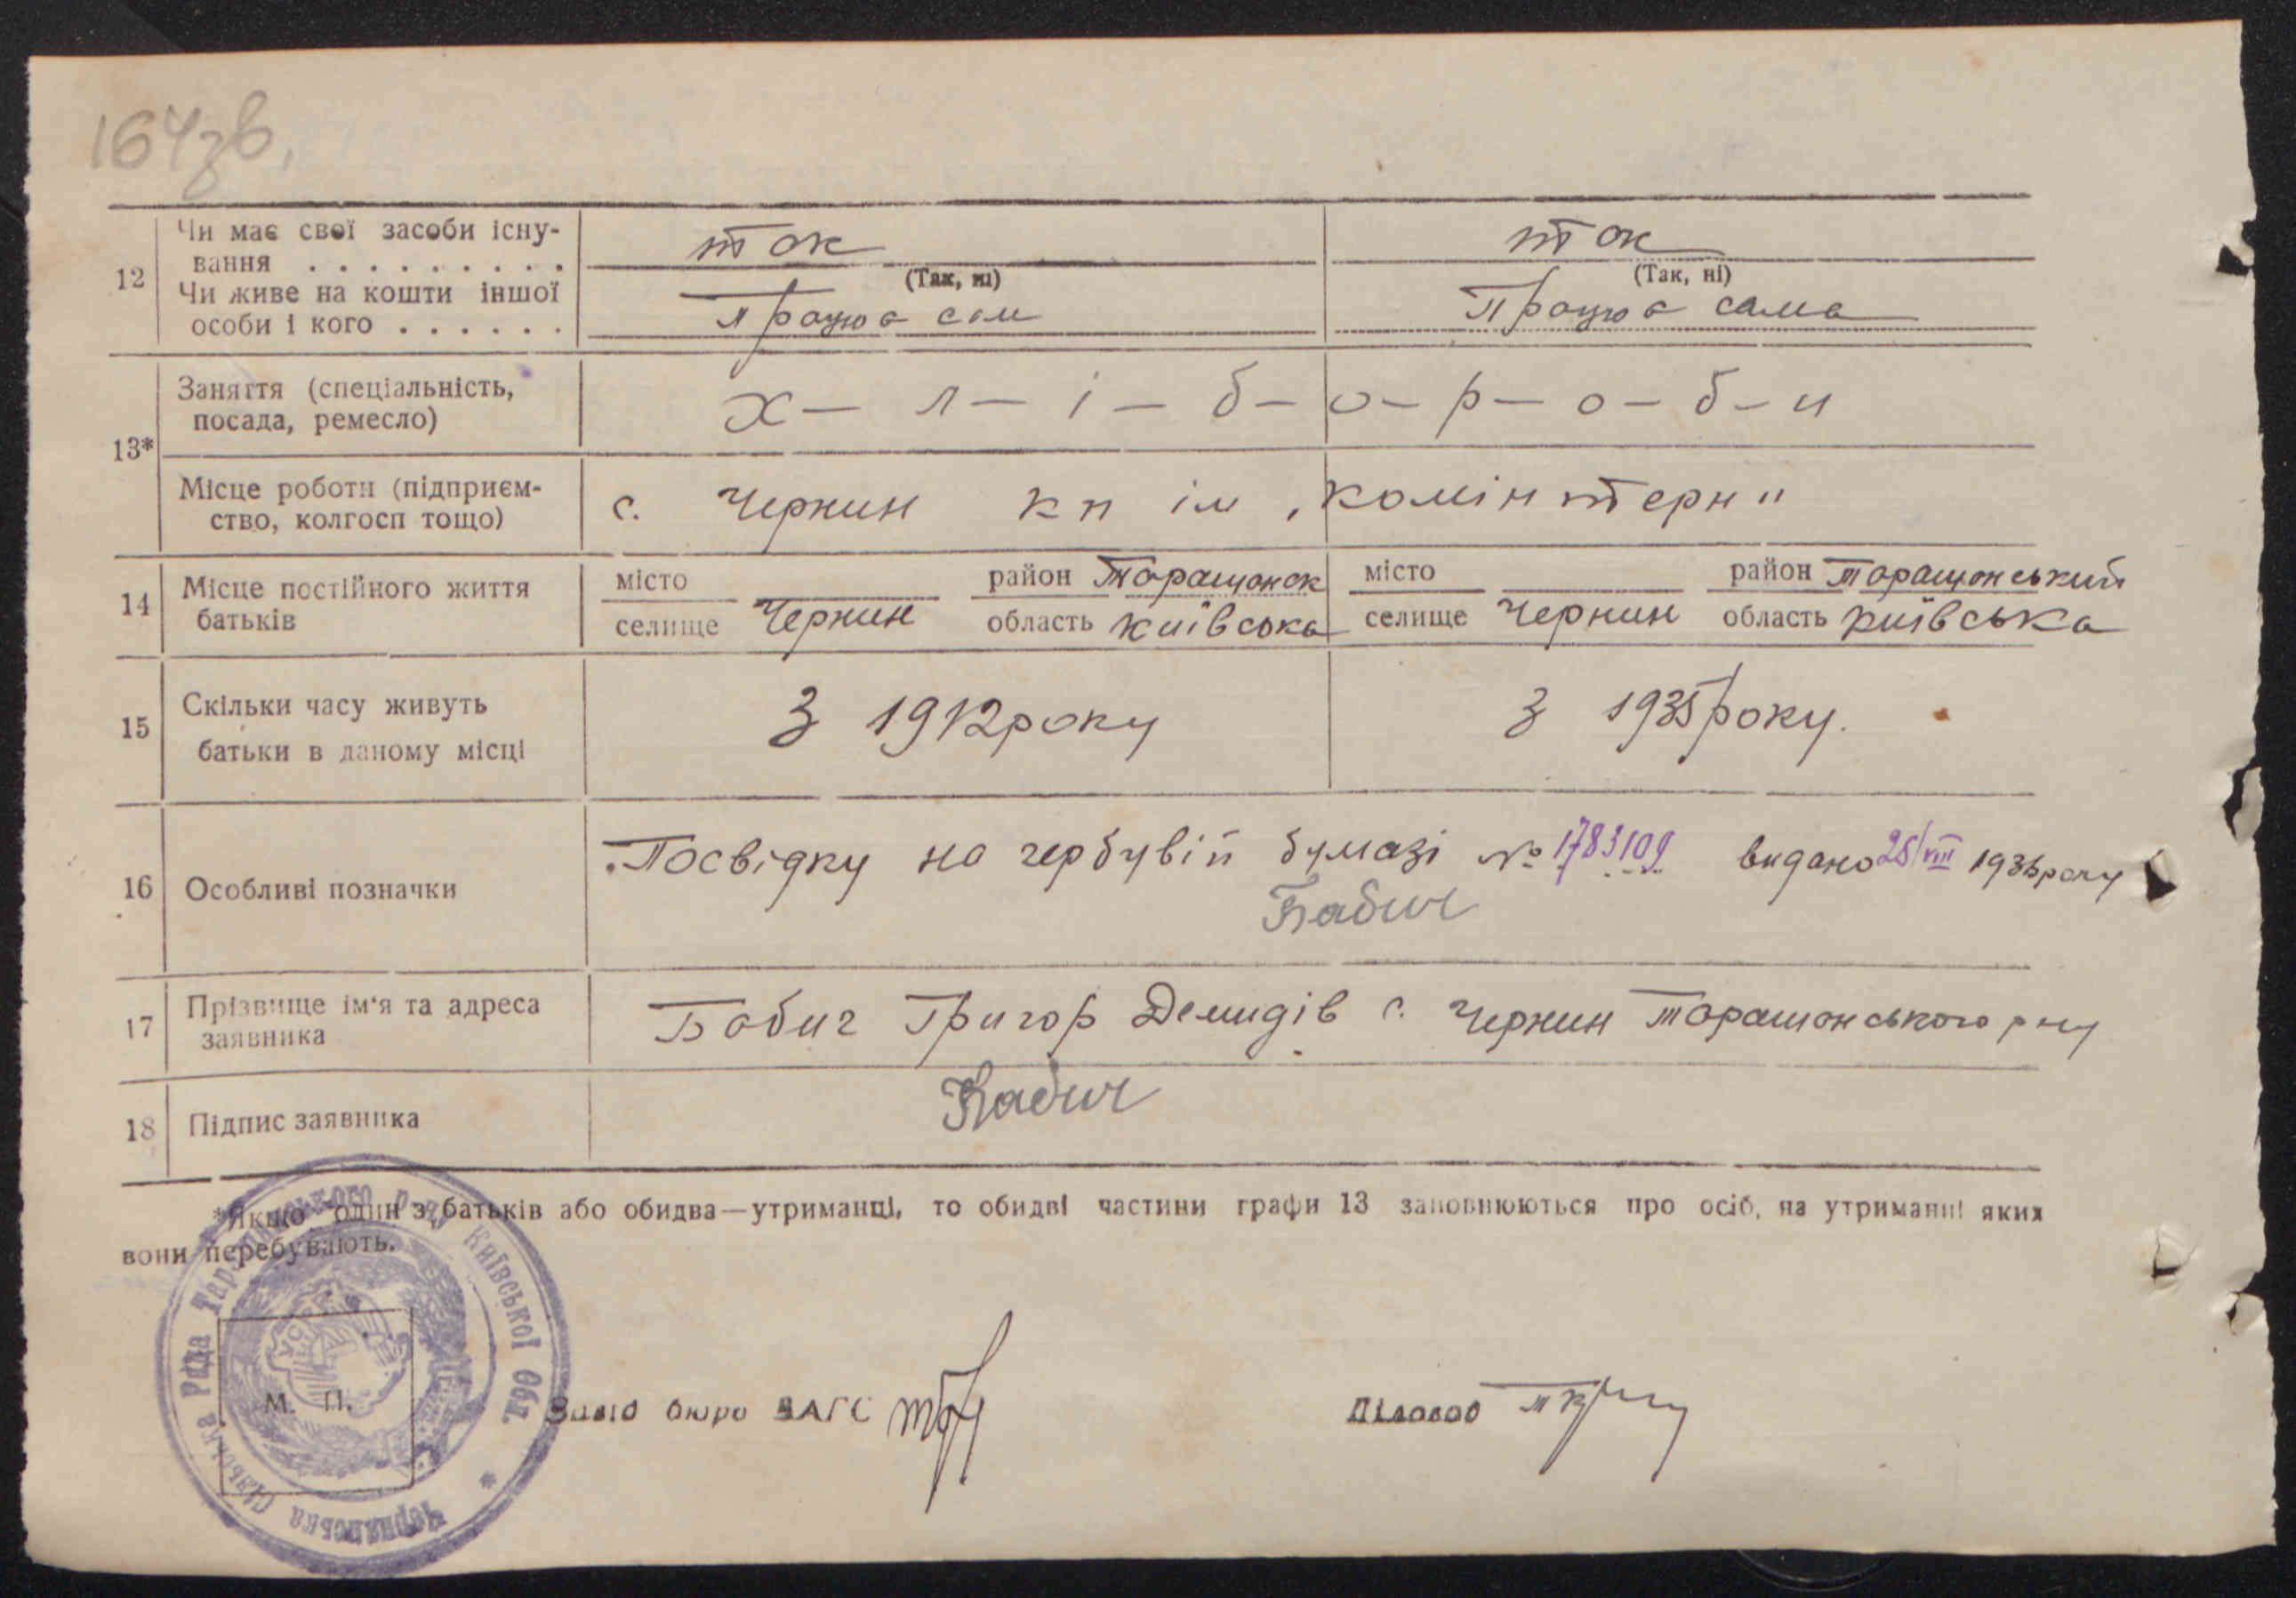 164зв.
12 Чи має свої засоби існу-
вання . . . . . . . . .
ток ток
(Так, ні) (Так, ні)
Чи живе на кошти іншої
особи і кого . . . . . .
Працюа сам Працюа сама
13* Заняття (спеціальність,
посада, ремесло)
х — л — і — б — о — р — о — б — и
Місце роботи (підприєм-
ство, колгосп тощо)
с. Чернин кп ім „комінтерн"
14 Місце постійного життя
батьків
місто район Таращанск місто район Таращонський
селище Чернин область Київська селище Чернин область Київська
15 Скільки часу живуть
батьки в даному місці
З 1912 року З 1935 року.
16 Особливі позначки
Посвідку на гербувій бумазі № 1783109 видано 25/VIII 1936 року
Бабич
17 Прізвище ім‘я та адреса
заявника
Бабич Григор Демидів с. Чернин Таращанського р-ну
18 Підпис заявника
Бабич
*Якщо один з батьків або обидва—утриманці, то обидві частини графи 13 заповнюються про осіб, на утриманні яких
вони перебувають.
Чернинська Сільська Рада Таращанського р-ну Київської Обл.
УСРР
М. П.
Завід бюро ЗАГС
Діловод